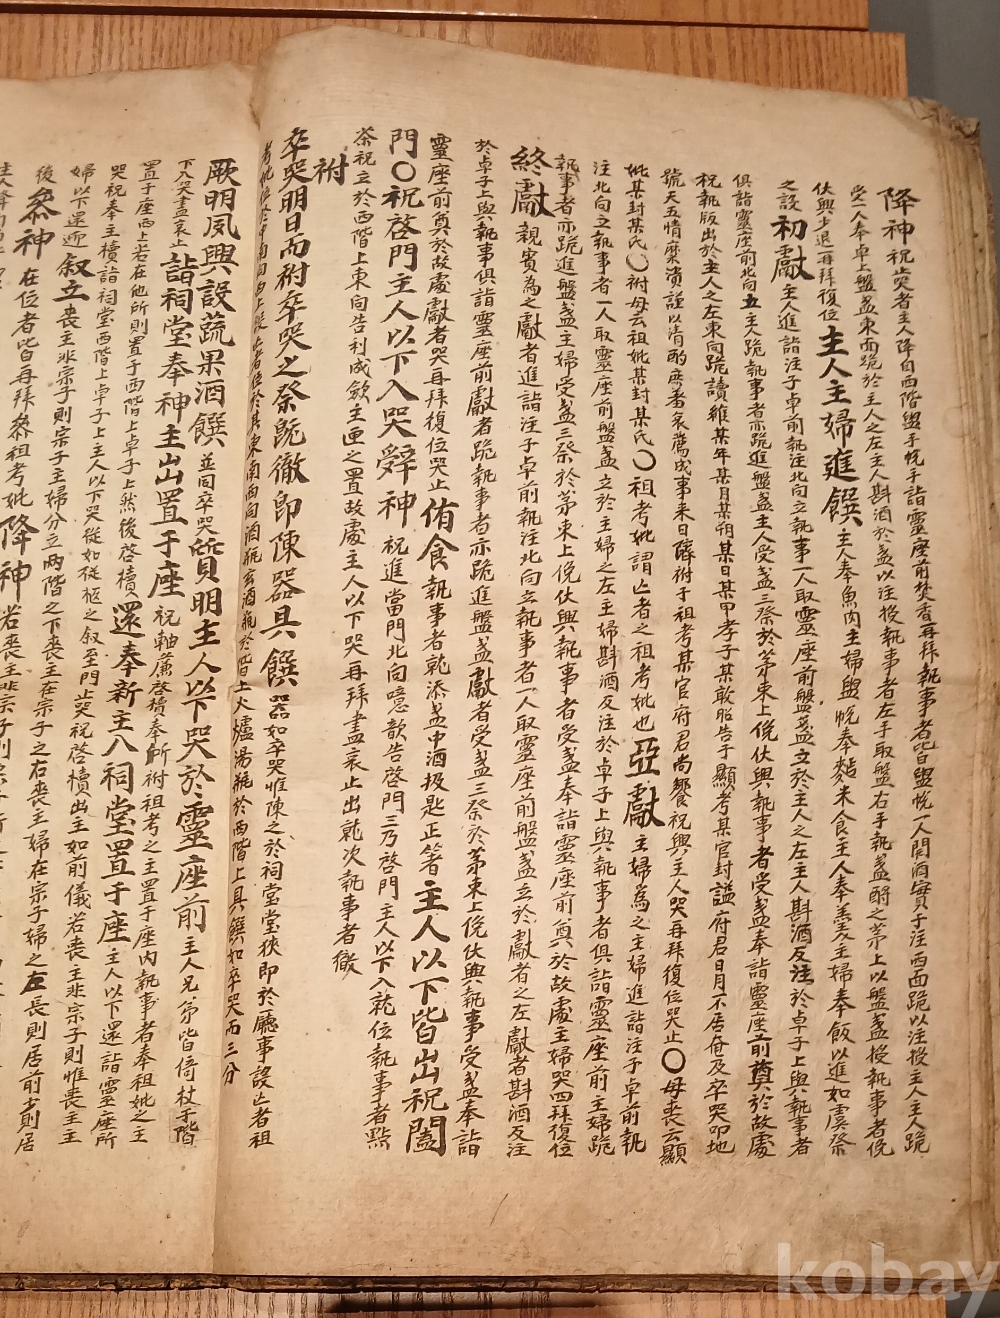 降神 祝焚香者主人降自西階盥手帨手詣靈座前焚香再拜執事者皆盥帨一人開酒實于注西面跪以注授主人主人跪
一人奉卓上盤盞東面跪於主人之左主人斟酒於盞以注授執事者左手取盤右手執盞酹之茅上以盤盞授執事者俛
伏興少退再拜復位 主人主婦進饌 主人奉魚肉主婦盥帨奉麪米食主人奉羹主婦奉飯以進如虞祭
之設 初獻 主人進詣注子卓前執注北向立執事一人取靈座前盤盞立於主人之左主人斟酒反注於卓子上與執事者
俱詣靈座前北向立主人跪執事者亦跪進盤盞主人受盞三祭於茅束上俛伏興執事者受盞奉詣靈座前奠於故處
祝執版出於主人之左東向跪讀維某年某月某朔某日某甲孝子某敢昭告于顯考某官封諡府君日月不居奄及卒哭叩地
號天五情糜潰謹以清酌庶羞哀薦成事來日隮祔于祖考某官府君尚饗祝興主人哭再拜復位哭止〇母喪云顯
妣某封某氏〇祔母云祖妣某封某氏〇祖考妣謂亡者之祖考妣也 亞獻 主婦為之主婦進詣注子卓前執
注北向立執事者一人取靈座前盤盞立於主婦之左主婦斟酒反注於卓子上與執事者俱詣靈座前主婦跪
執事者亦跪進盤盞主婦受盞三祭於茅束上俛伏興執事者受盞奉詣靈座前奠於故處主婦哭四拜復位
終獻 親賓為之獻者進詣注子卓前執注北向立執事者一人取靈座前盤盞立於獻者之左獻者斟酒反注
於卓子上與執事俱詣靈座前獻者跪執事者亦跪進盤盞獻者受盞三祭於茅束上俛伏興執事受盞奉詣
靈座前奠於故處獻者哭再拜復位哭止 侑食 執事者就添盞中酒扱匙正箸 主人以下皆出祝闔
門〇祝啓門主人以下入哭辭神 祝進當門北向噫歆告啓門三乃啓門主人以下入就位執事者點
茶祝立於西階上東向告利成歛主匣之置故處主人以下哭再拜盡哀止出就次執事者徹
祔
卒哭明日而祔卒哭之祭旣徹卽陳器具饌 器如卒哭惟陳之於祠堂堂狹卽於廳事設亡者祖
考妣位於中南向西上設亡者位於其東南西向酒瓶玄酒瓶於階上火爐湯瓶於西階上具饌如卒哭而三分
厥明夙興設蔬果酒饌 並同卒哭 質明主人以下哭於靈座前 主人兄弟皆倚杖于階
下入哭盡哀止 詣祠堂奉神主出置于座 祝軸簾啓櫝奉所祔祖考之主置于座內執事者奉祖妣之主
置于座西上若在他所則置于西階上卓子上然後啓櫝 還奉新主入祠堂置于座 主人以下還詣靈座所
哭祝奉主櫝詣祠堂西階上卓子上主人以下哭從如從柩之叙至門止哭祝啓櫝出主如前儀若喪主非宗子則惟喪主主
婦以下還迎 叙立 喪主非宗子則宗子主婦分立兩階之下喪主在宗子之右喪主婦在宗子婦之左長則居前少則居
後 叅神 在位者皆再拜叅祖考妣 降神 若喪主非宗子則宗子